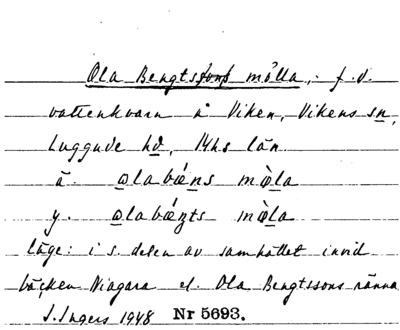 Ola Bengtssons mölla, f.d.
vattenkvarn i Viken, Vikens sn,
Luggude hd, Mhs län
ä. ɷlabǽns mœ̀la
y. ɷlabǽŋts mœ̀la
läge: i s. delen av samhället invid
bäcken Niagara el. Ola Bengtssons ränna
I. Ingers 1948 Nr 5693.